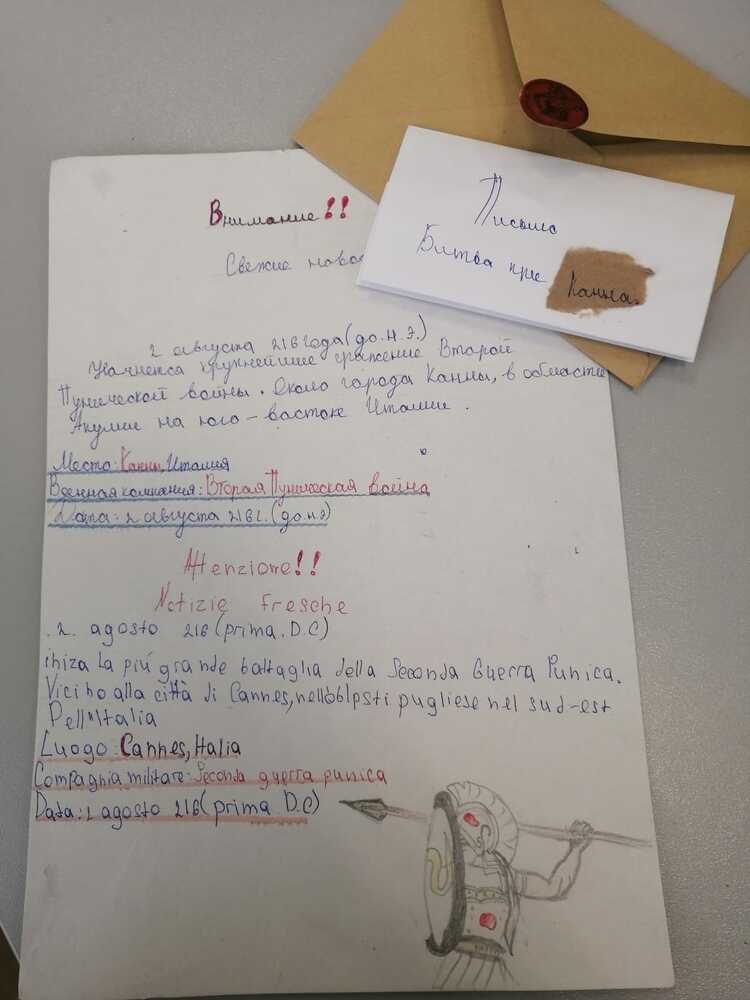 Внимание!!
Свежие новос
Письмо
Битва при Канна.
2 августа 216 года (до.н.э.)
Начнется крупнейшие сражение Второй
Пунической войны. Около города Канны, в области
Апулии на юго-востоке Италии.
Место: Канны, Италия
Военная компания: Вторая Пуническая война
Дата: 2 августа 216г. (до.н.э)
Attenzione!!
Notizie fresche
2. agosto 216 (prima. D.C)
iniza La più grande battaglia della Seconda Guerra Punica.
Vicino alla città di Cannes, pugliese nel sud-est
Dell'Italia
Luogo: Cannes, Italia
Compagnia militare: Seconda guerra punica
Data: 2 agosto 216 (prima D.C)